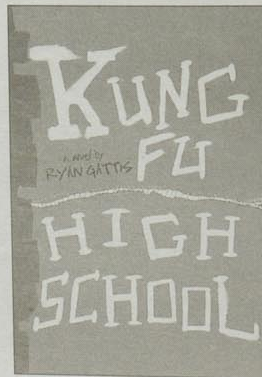 KUNG
FU
a novel by
RYAN GATTIS
HIGH
SCHOOL